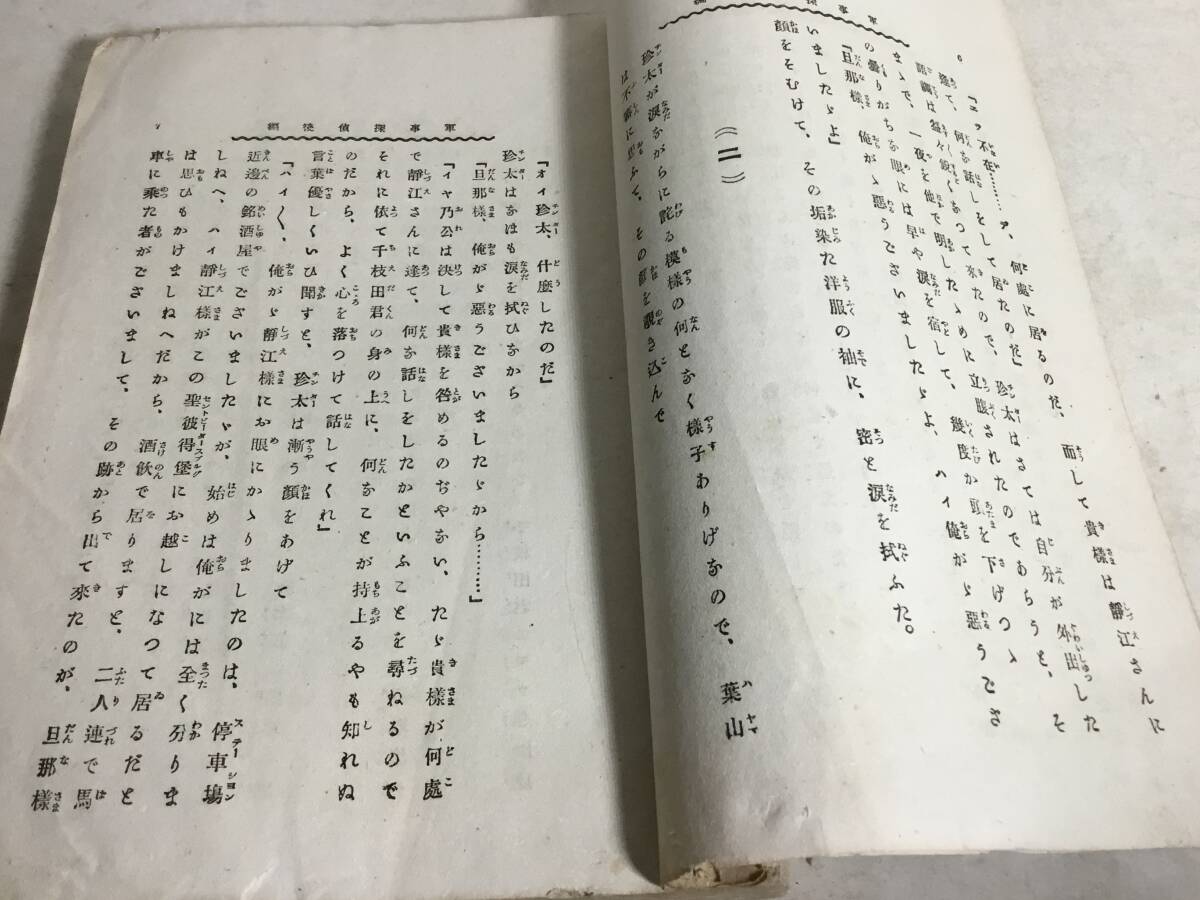 軍事探偵
六
『エツ不在……ア、何處に居るのだ、而して貴様は靜江さんに
逢て、何を話しをして居たのだ』珍太はさては自分が外出した
語調は益々鋭くなつて來たので、立腹されたのであらうと、そ
まゝで、一夜を他で明したゝめに
の曇りがちな眼には早や涙を宿して、幾度か頭を下げつゝ
『旦那様、俺がゝ惡うございましたゝよ、ハイ俺がゝ惡うござ
いましたゝよ』
顔をそむけて、その垢染た洋服の袖に、密と涙を拭ふた。
(二)
珍太が涙ながらに詫る模様の何となく様子ありげなので、葉山
は不審に思ふて、その顔を覗き込んで
軍事探偵後編
七
『オイ珍太、什麼したのだ』
珍太はなほも涙を拭ひながら
『旦那様、俺がゝ惡うございましたゝから…………』
『イヤ乃公は決して貴様を咎めるのぢやない、たゞ貴様が何處
で靜江さんに逢て、何を話しをしたかといふことを尋ねるので
それに依て千枝田君の身の上に、何なことが持上るやも知れぬ
のだから、よく心を落つけて話してくれ』
言葉優しくいひ聞すと、珍太は漸う顔をあげて
『ハイ〱、俺がゝ靜江様にお眼にかゝりましたのは、停車場
近邊の銘酒屋でございましたゝが、始めは俺がには全く分りま
しねへ、ハイ靜江様がこの聖彼得堡にお越しになつて居るだと
は思ひもかけましねへだから、酒飲で居りますと、二人連で馬
車に乘た者がございまして、その跡から出て來たのが、旦那様